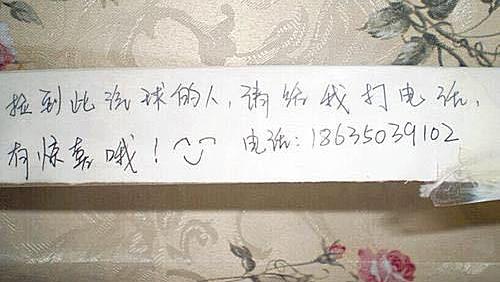 捡到此汽球的人,请给我打电话,
有惊喜哦!电话:18635039102